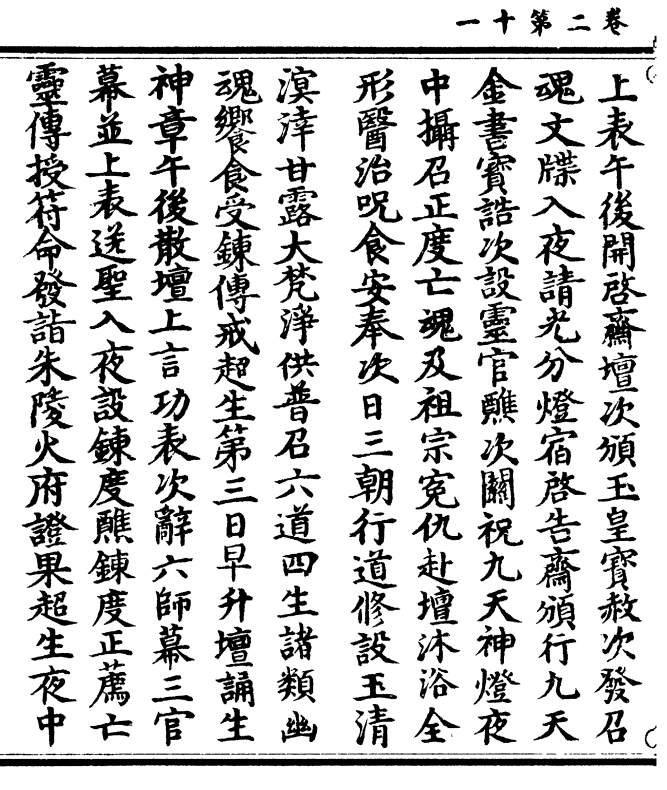 卷二第十一
上表午後開啓齋壇次頒玉皇寶赦次發召
魂文牒入夜請光分燈宿啓告齋頒行九天
金書寶誥次設靈官醮次關祝九天神燈夜
中攝召正度亡魂及祖宗寃仇赴壇沐浴全
形醫治呪食安奉次日三朝行道修設玉清
溟涬甘露大梵淨供普召六道四生諸類幽
魂饗食受鍊傳戒超生第三日早升壇誦生
神章午後散壇上言功表次辭六師幕三官
幕並上表送聖入夜設鍊度醮鍊度正薦亡
靈傳授符命發詣朱陵火府證果超生夜中